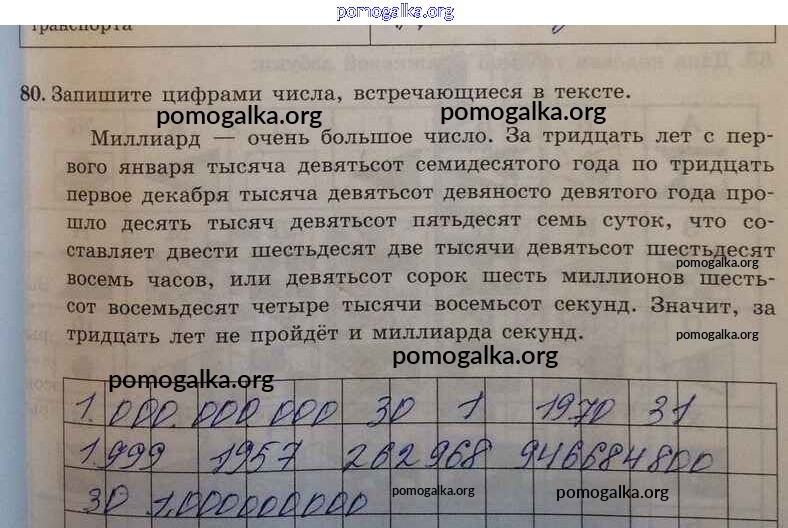 pomogalka.org
транспорта
80. Запишите цифрами числа, встречающиеся в тексте.
pomogalka.org pomogalka.org
Миллиард — очень большое число. За тридцать лет с пер-
вого января тысяча девятьсот семидесятого года по тридцать
первое декабря тысяча девятьсот девяносто девятого года про-
шло десять тысяч девятьсот пятьдесят семь суток, что со-
ставляет двести шестьдесят две тысячи девятьсот шестьдесят
pomogalka.org
восемь часов, или девятьсот сорок шесть миллионов шесть-
сот восемьдесят четыре тысячи восемьсот секунд. Значит, за
тридцать лет не пройдёт и миллиарда секунд.
pomogalka.org
pomogalka.org
pomogalka.org
1.000.000 000 30 1 1970 31
1.999 1957 262 968 946684800
30 1.000000000
pomogalka.org pomogalka.org